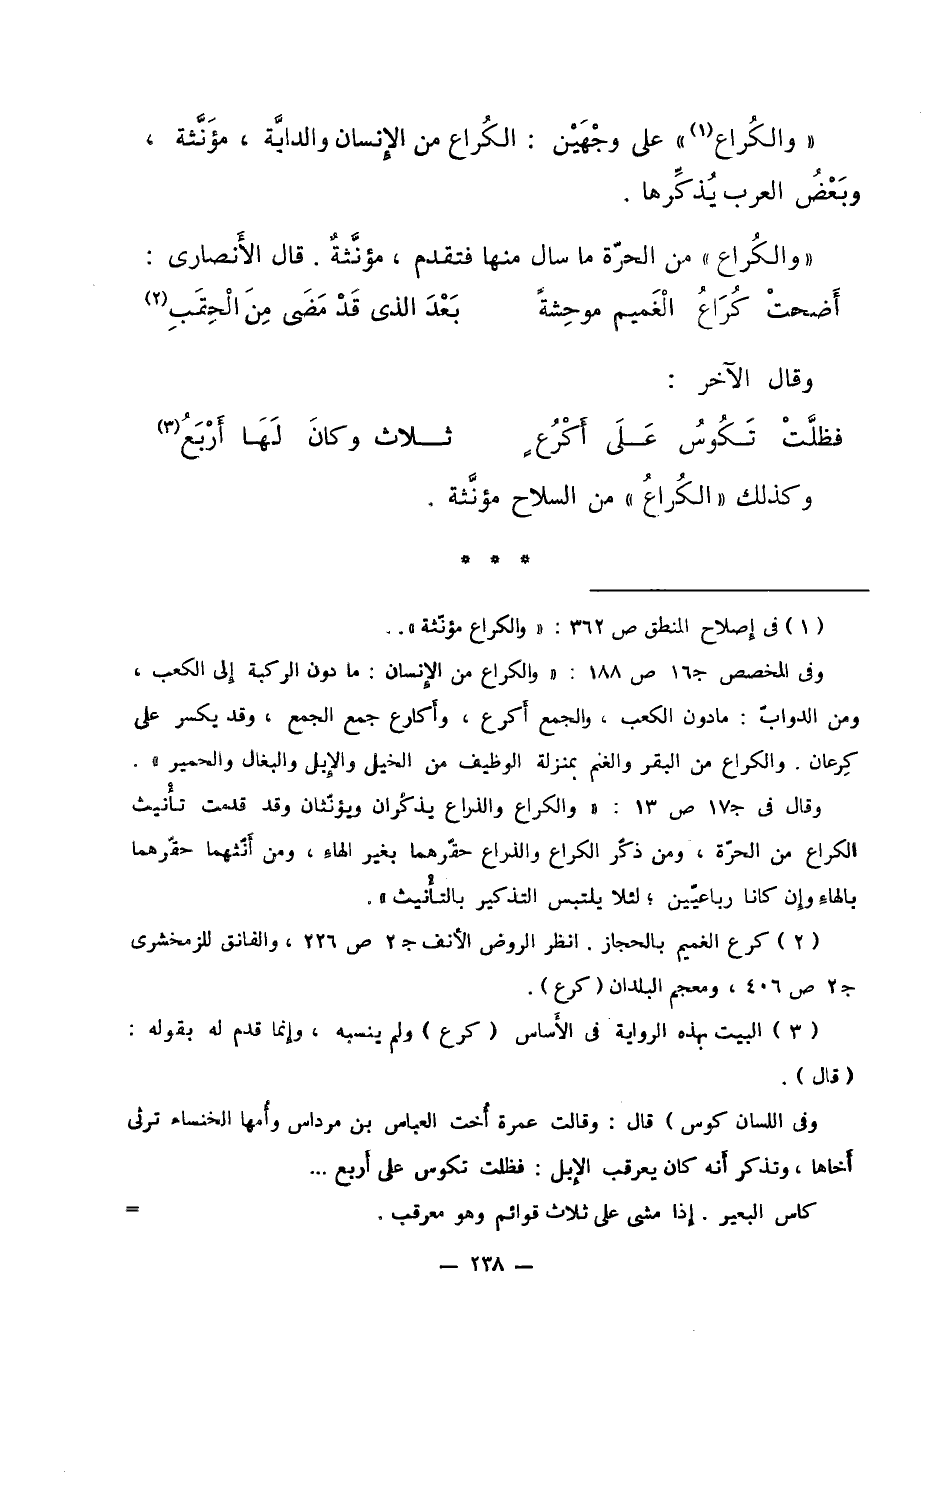 « والكُراع(١)» على وجْهَيْن : الكُراع من الإِنسان والدابَّة ، مؤَنَّثة ،
وبَعْضُ العرب يُذكِّرها .
«والكُراع» من الحرّة ما سال منها فتقدم ، مؤنَّثةٌ . قال الأَنصارى :
أَضحتْ كُرَاعُ الْغَميم موحِشةً بَعْدَ الذى قَدْ مَضَى مِنَ الْحِقَبِ(٢)
وقال الآخر :
فظلَّتْ تَكُوسُ عَلَى أَكْرُعٍ ثلاث وكانَ لَهَا أَرْبَعُ(٣)
وكذلك «الكُراعُ» من السلاح مؤنَّثة .
* * *
(١) فى إصلاح المنطق ص ٣٦٢ : « والكراع مؤنّثة »..
وفى المخصص جـ١٦ ص ١٨٨ : « والكراع من الإِنسان : ما دون الركبة إلى الكعب ،
ومن الدوابّ : مادون الكعب ، والجمع أكرع ، وأكارع جمع الجمع ، وقد يكسر على
كِرعان . والكراع من البقر والغنم بمنزلة الوظيف من الخيل والإبل والبغال والحمير » .
وقال فى جـ١٧ ص ١٣ : « والكراع والذراع يذكّران ويؤنّثان وقد قدمت تأْنيث
الكراع من الحرّة ، ومن ذكّر الكراع والذراع حقّرهما بغير الهاء ، ومن أنّثهما حقّرهما
بالهاء وإن كانا رباعيّين ؛ لئلا يلتبس التذكير بالتأْنيث » .
(٢) كرع الغميم بالحجاز . انظر الروض الأنف جـ ٢ ص ٢٢٦ ، والفائق للزمخشرى
جـ٢ ص ٤٠٦ ، ومعجم البلدان (كرع) .
(٣) البيت بهذه الرواية فى الأَساس ( كرع ) ولم ينسبه ، وإنما قدم له بقوله :
(قال) .
وفى اللسان كوس ) قال : وقالت عمرة أُخت العباس بن مرداس وأُمها الخنساء ترثى
أَخاها ، وتذكر أنه كان يعرقب الإبل : فظلت تكوس على أربع ...
كاس البعير . إذا مشى على ثلاث قوائم وهو معرقب . =
— ٢٣٨ —